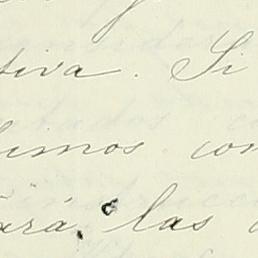 tiva. Si
limos con
ará, las